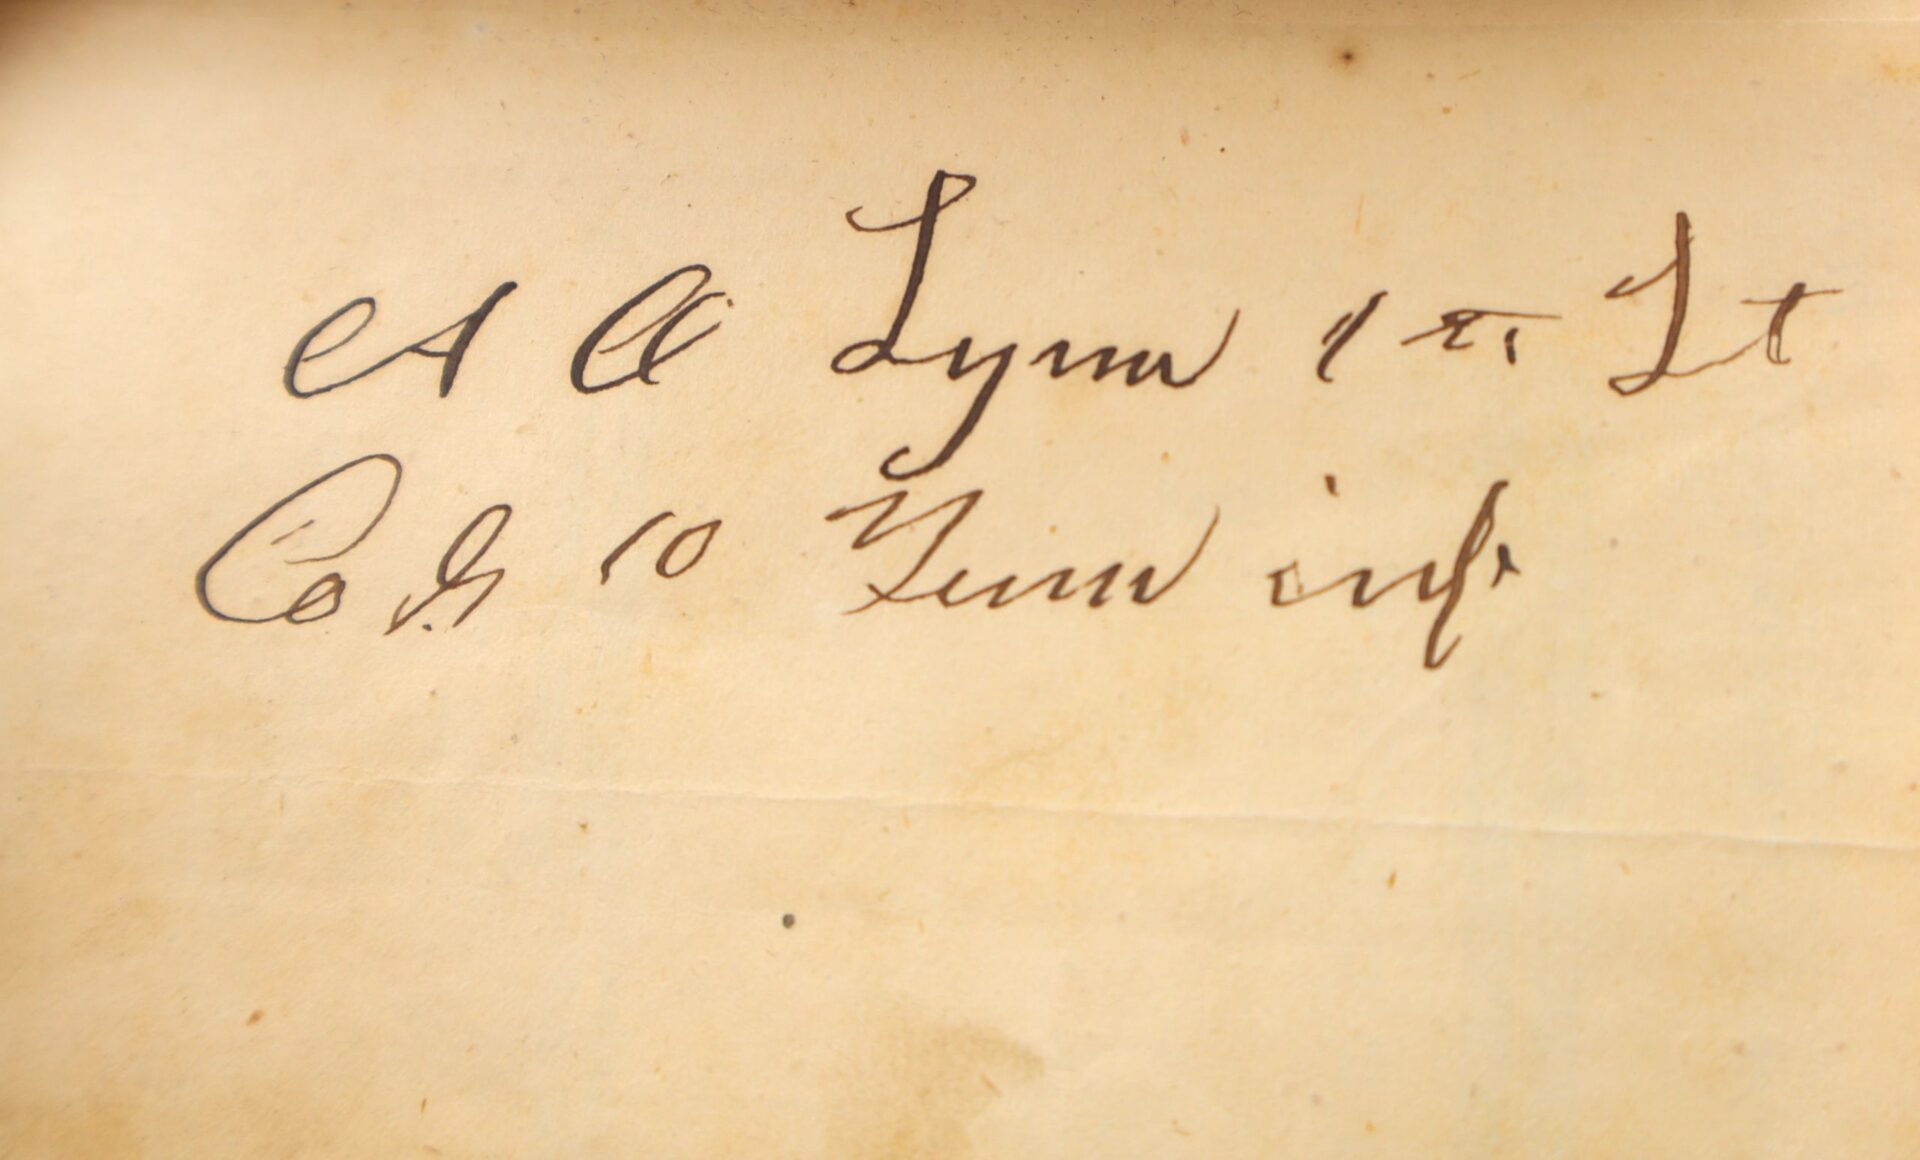 A A Lynn 1st Lt
Co G 10 Tenn inf